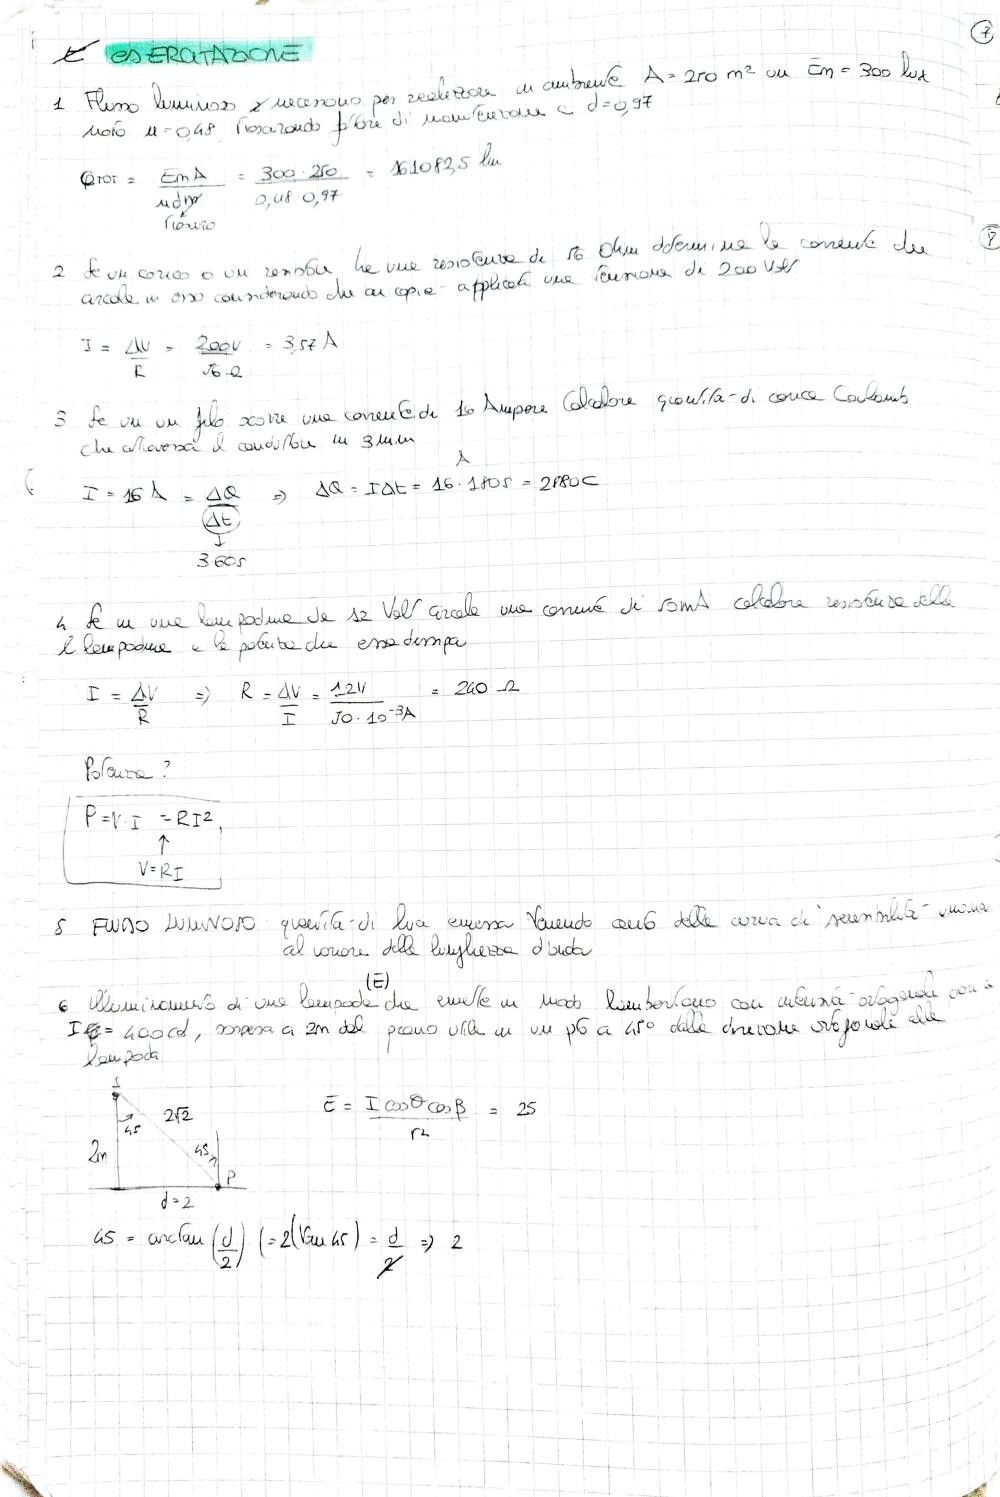 7
ESERCITAZIONE
1 Flusso luminoso necessario per realizzare in ambiente A = 250 m² un Em = 300 lux
noto u = 0,48 di manutenzione d = 0,97
φTOT = EmA / udm = 300 · 250 / 0,48 0,97 = 161082,5 lm
2 Se un carico o un resistore ha una resistenza di 56 Ohm determina la corrente che
circola in esso considerando che ai capi è applicata una tensione di 200 Volt
I = ΔV / R = 200V / 56 Ω = 3,57 A
3 Se in un filo scorre una corrente di 16 Ampere Calcolare quantità di carica Coulomb
che attraversa il conduttore in 3 min
I = 16 A = ΔQ / Δt => ΔQ = IΔt = 16 A · 180s = 2880C
3 60s
4 Se in una lampadina da 12 Volt circola una corrente di 50mA calcolare resistenza della
lampadina e la potenza che essa dissipa
I = ΔV / R => R = ΔV / I = 12V / 50 · 10⁻³A = 240 Ω
Potenza ?
P = V · I = RI²
↑
V = RI
5 FLUSSO LUMINOSO quantità di luce emessa tenendo conto della curva di sensibilità umana
al variare della lunghezza d'onda
(E)
6 Illuminamento di una lampada che emette in modo lambertiano con intensità ortogonale
I = 400 cd, sospesa a 2m dal piano utile in un pto a 45° dalla direzione ortogonale alla
lampada
S
45
2√2
2m
45
P
d = 2
E = I cosθ cosβ / r² = 25
45 = arctan (d/2) (= 2(tan 45) = d/2 => 2